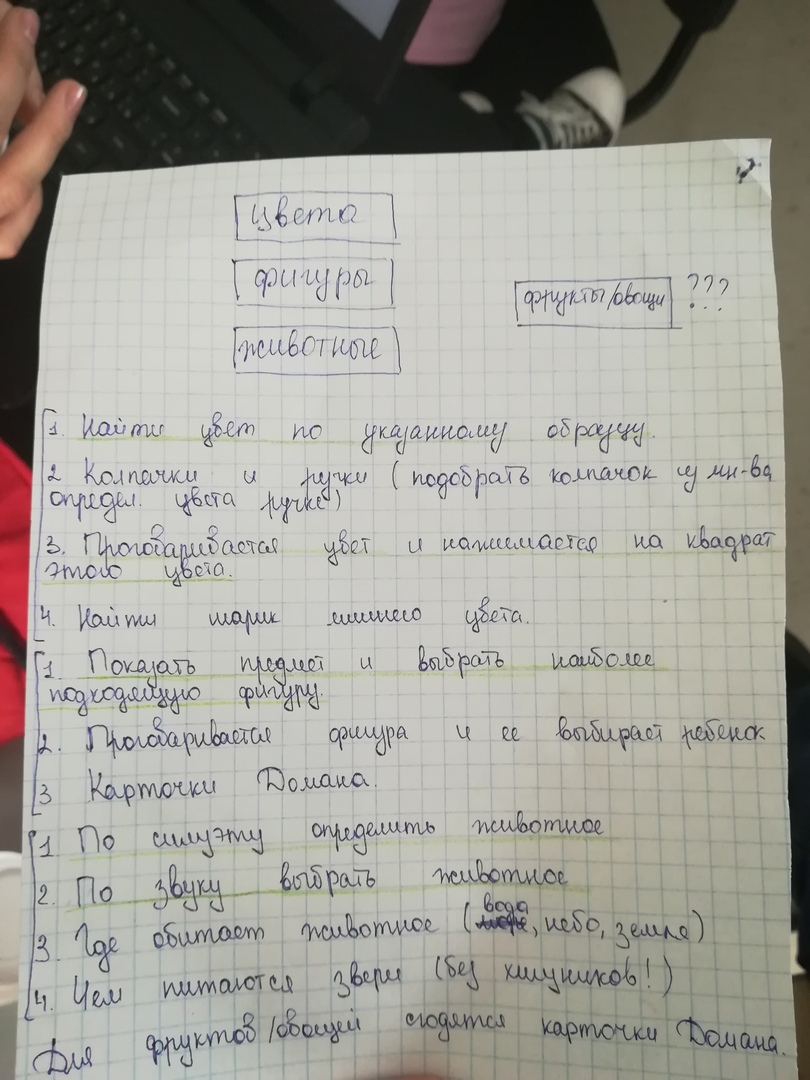 цвета
фигуры
фрукты/овощи ???
животные
1. Найти цвет по указанному образцу.
2 Колпачки и ручки (подобрать колпачок из мн-ва
определ. цвета ручке)
3. Проговаривается цвет и нажимается на квадрат
этого цвета.
4. Найти шарик лишнего цвета.
1. Показать предмет и выбрать наиболее
подходящую фигуру.
2. Проговаривается фигура и ее выбирает ребенок
3 Карточки Домана.
1. По силуэту определить животное
2. По звуку выбрать животное
3. Где обитает животное (вода, небо, земля)
4. Чем питаются звери (без хищников!)
Для фруктов/овощей сгодятся карточки Домана.